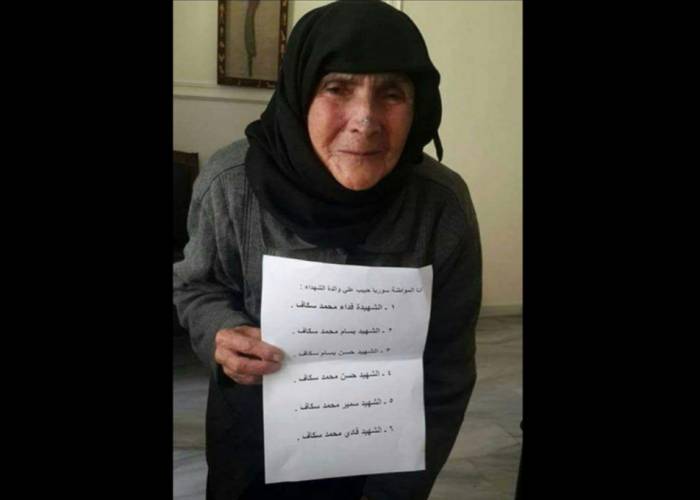 أنا المواطنة سوريا حبيب علي والدة الشهداء :
١ ـ الشهيدة فداء محمد سكاف .
٢ ـ الشهيد بسام محمد سكاف .
٣ ـ الشهيد حسن بسام سكاف .
٤ ـ الشهيد حسن محمد سكاف .
٥ ـ الشهيد سمير محمد سكاف .
٦ ـ الشهيد فادي محمد سكاف .